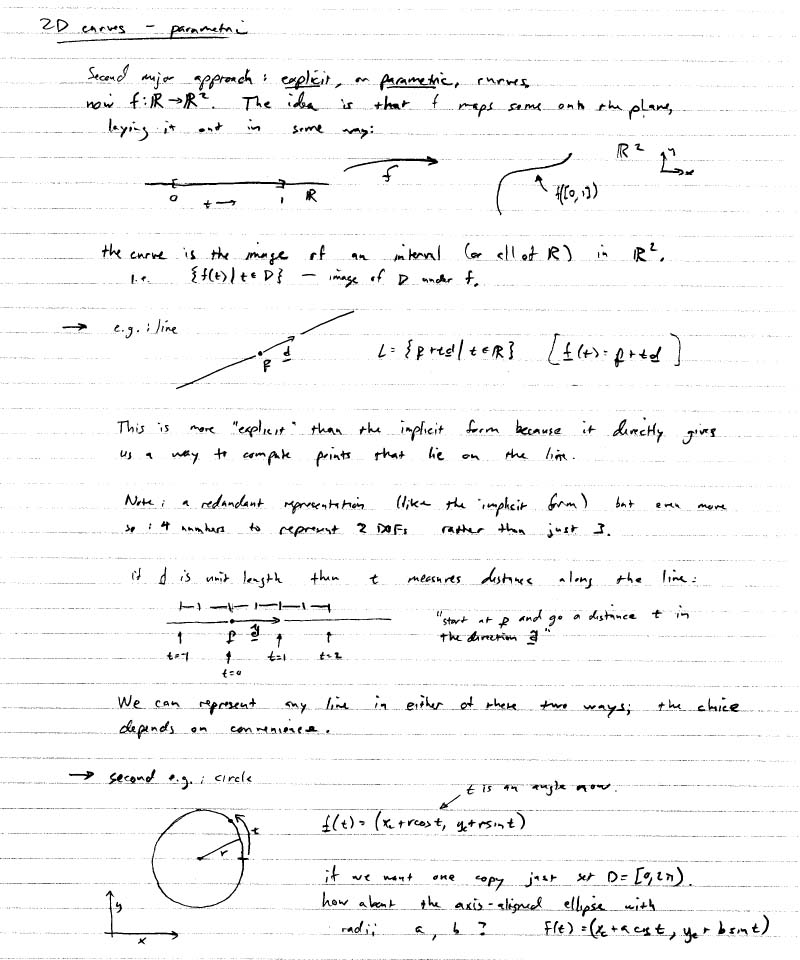 2D curves – parametric
Second major approach : explicit, or parametric, curves
now f: ℝ → ℝ². The idea is that f maps some onto the plane,
laying it out in some way:
ℝ² y x
0 t → 1 ℝ f f([0,1])
the curve is the image of an interval (or all of ℝ) in ℝ².
i.e. {f(t) | t ∈ D} — image of D under f.
→ e.g. : line
p d L = {p + td | t ∈ ℝ} [f(t) = p + td]
This is more "explicit" than the implicit form because it directly gives
us a way to compute points that lie on the line.
Note: a redundant representation (like the implicit form) but even more
so : 4 numbers to represent 2 DOFs rather than just 3.
if d is unit length then t measures distance along the line:
"start at p and go a distance t in
the direction d"
p d
t=-1 t=0 t=1 t=2
We can represent any line in either of these two ways; the choice
depends on convenience.
→ second e.g. : circle
t is an angle now.
f(t) = (xc + r cos t, yc + r sin t)
r t
if we want one copy just set D = [0, 2π).
how about the axis-aligned ellipse with
radii a, b ? f(t) = (xc + a cos t, yc + b sin t)
y x